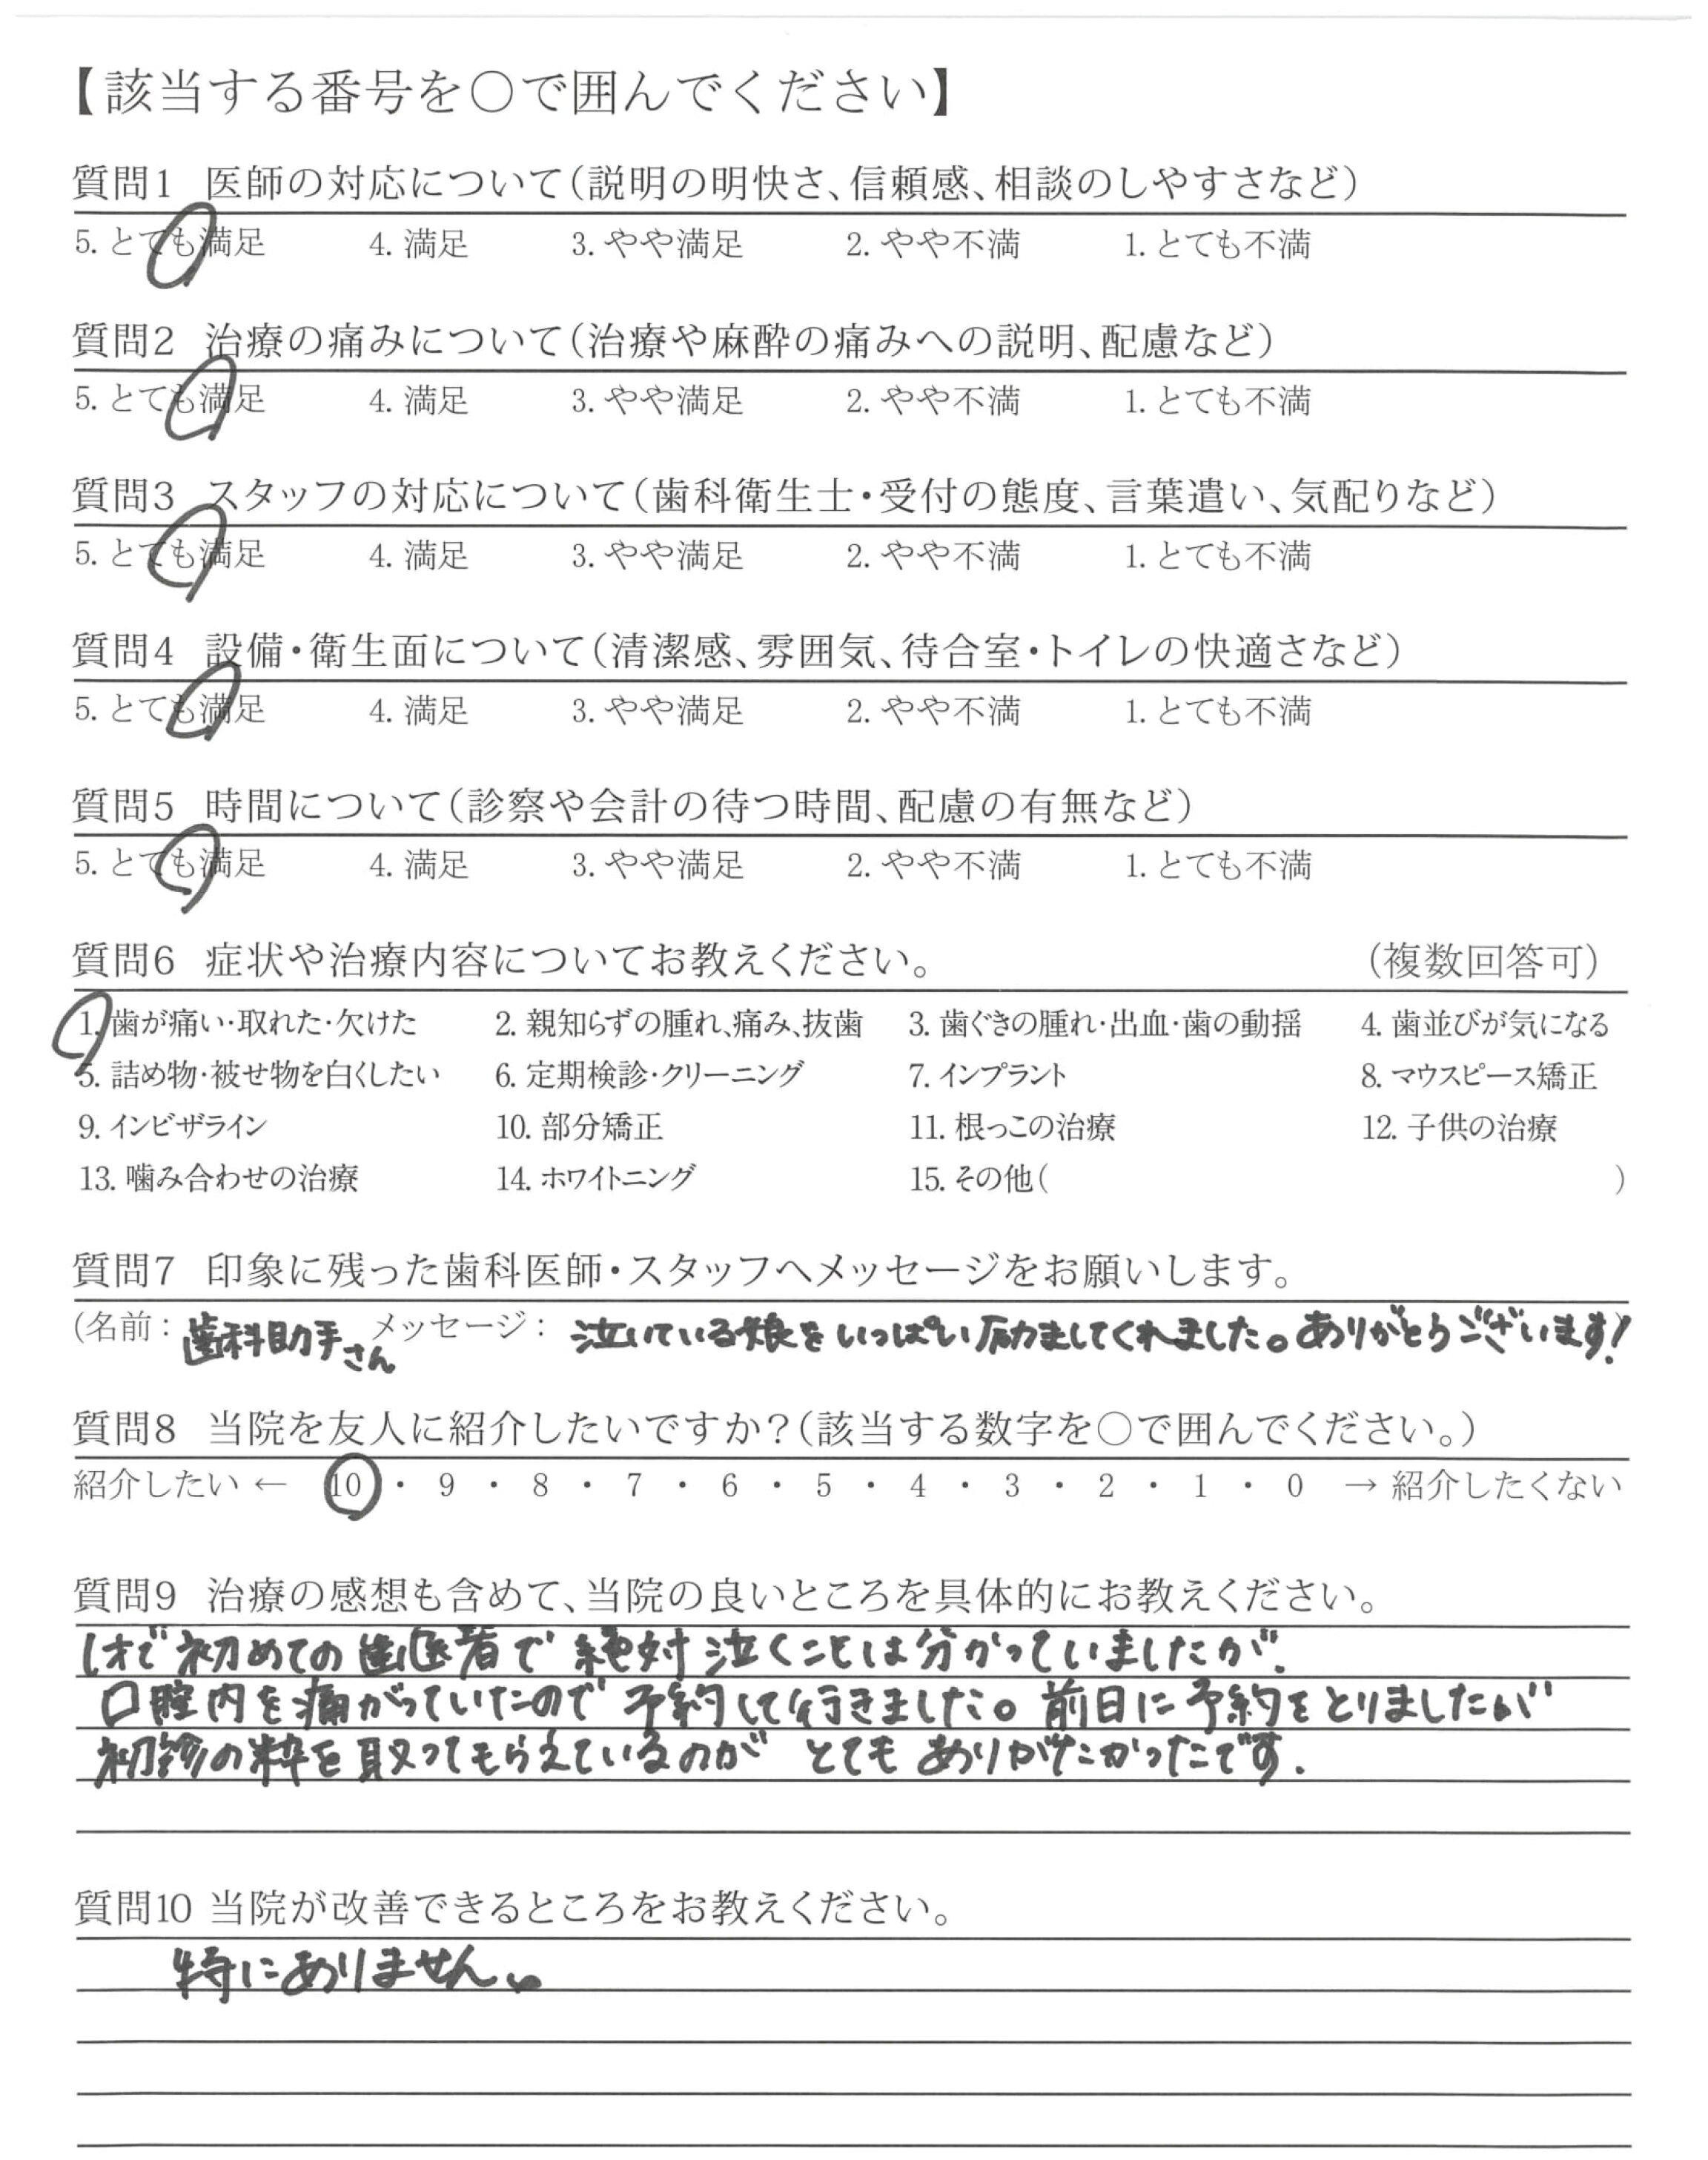 【該当する番号を○で囲んでください】
質問1 医師の対応について（説明の明快さ、信頼感、相談のしやすさなど）
5. とても満足 4. 満足 3. やや満足 2. やや不満 1. とても不満
質問2 治療の痛みについて（治療や麻酔の痛みへの説明、配慮など）
5. とても満足 4. 満足 3. やや満足 2. やや不満 1. とても不満
質問3 スタッフの対応について（歯科衛生士・受付の態度、言葉遣い、気配りなど）
5. とても満足 4. 満足 3. やや満足 2. やや不満 1. とても不満
質問4 設備・衛生面について（清潔感、雰囲気、待合室・トイレの快適さなど）
5. とても満足 4. 満足 3. やや満足 2. やや不満 1. とても不満
質問5 時間について（診察や会計の待つ時間、配慮の有無など）
5. とても満足 4. 満足 3. やや満足 2. やや不満 1. とても不満
質問6 症状や治療内容についてお教えください。 （複数回答可）
1. 歯が痛い・取れた・欠けた 2. 親知らずの腫れ、痛み、抜歯 3. 歯ぐきの腫れ・出血・歯の動揺 4. 歯並びが気になる
5. 詰め物・被せ物を白くしたい 6. 定期検診・クリーニング 7. インプラント 8. マウスピース矯正
9. インビザライン 10. 部分矯正 11. 根っこの治療 12. 子供の治療
13. 噛み合わせの治療 14. ホワイトニング 15. その他（ ）
質問7 印象に残った歯科医師・スタッフへメッセージをお願いします。
（名前： 歯科助手さん メッセージ： 泣いている娘をいっぱい励ましてくれました。ありがとうございます！）
質問8 当院を友人に紹介したいですか？（該当する数字を○で囲んでください。）
紹介したい ← 10 ・ 9 ・ 8 ・ 7 ・ 6 ・ 5 ・ 4 ・ 3 ・ 2 ・ 1 ・ 0 → 紹介したくない
質問9 治療の感想も含めて、当院の良いところを具体的にお教えください。
1才で初めての歯医者で絶対泣くことは分かっていましたが、
口腔内を痛がっていたので予約して行きました。前日に予約をとりましたが
初診の枠を取ってもらえているのが とてもありがたかったです.
質問10 当院が改善できるところをお教えください。
特にありません。